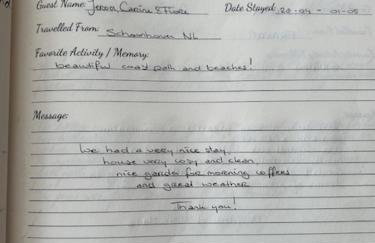 Guest Name: Jeroen, Carine & Fiore Date Stayed: 28-04 - 01-05
Travelled From: Schoonhoven NL
Favorite Activity / Memory:
beautiful coast path and beaches!
Message:
We had a very nice stay,
house very cosy and clean,
nice garden for morning coffees
and great weather
Thank you!